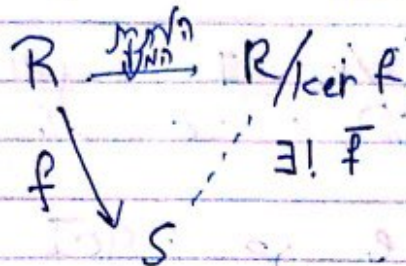 העתקת
המנה
R → R/ker f
f ∃! f̄
S